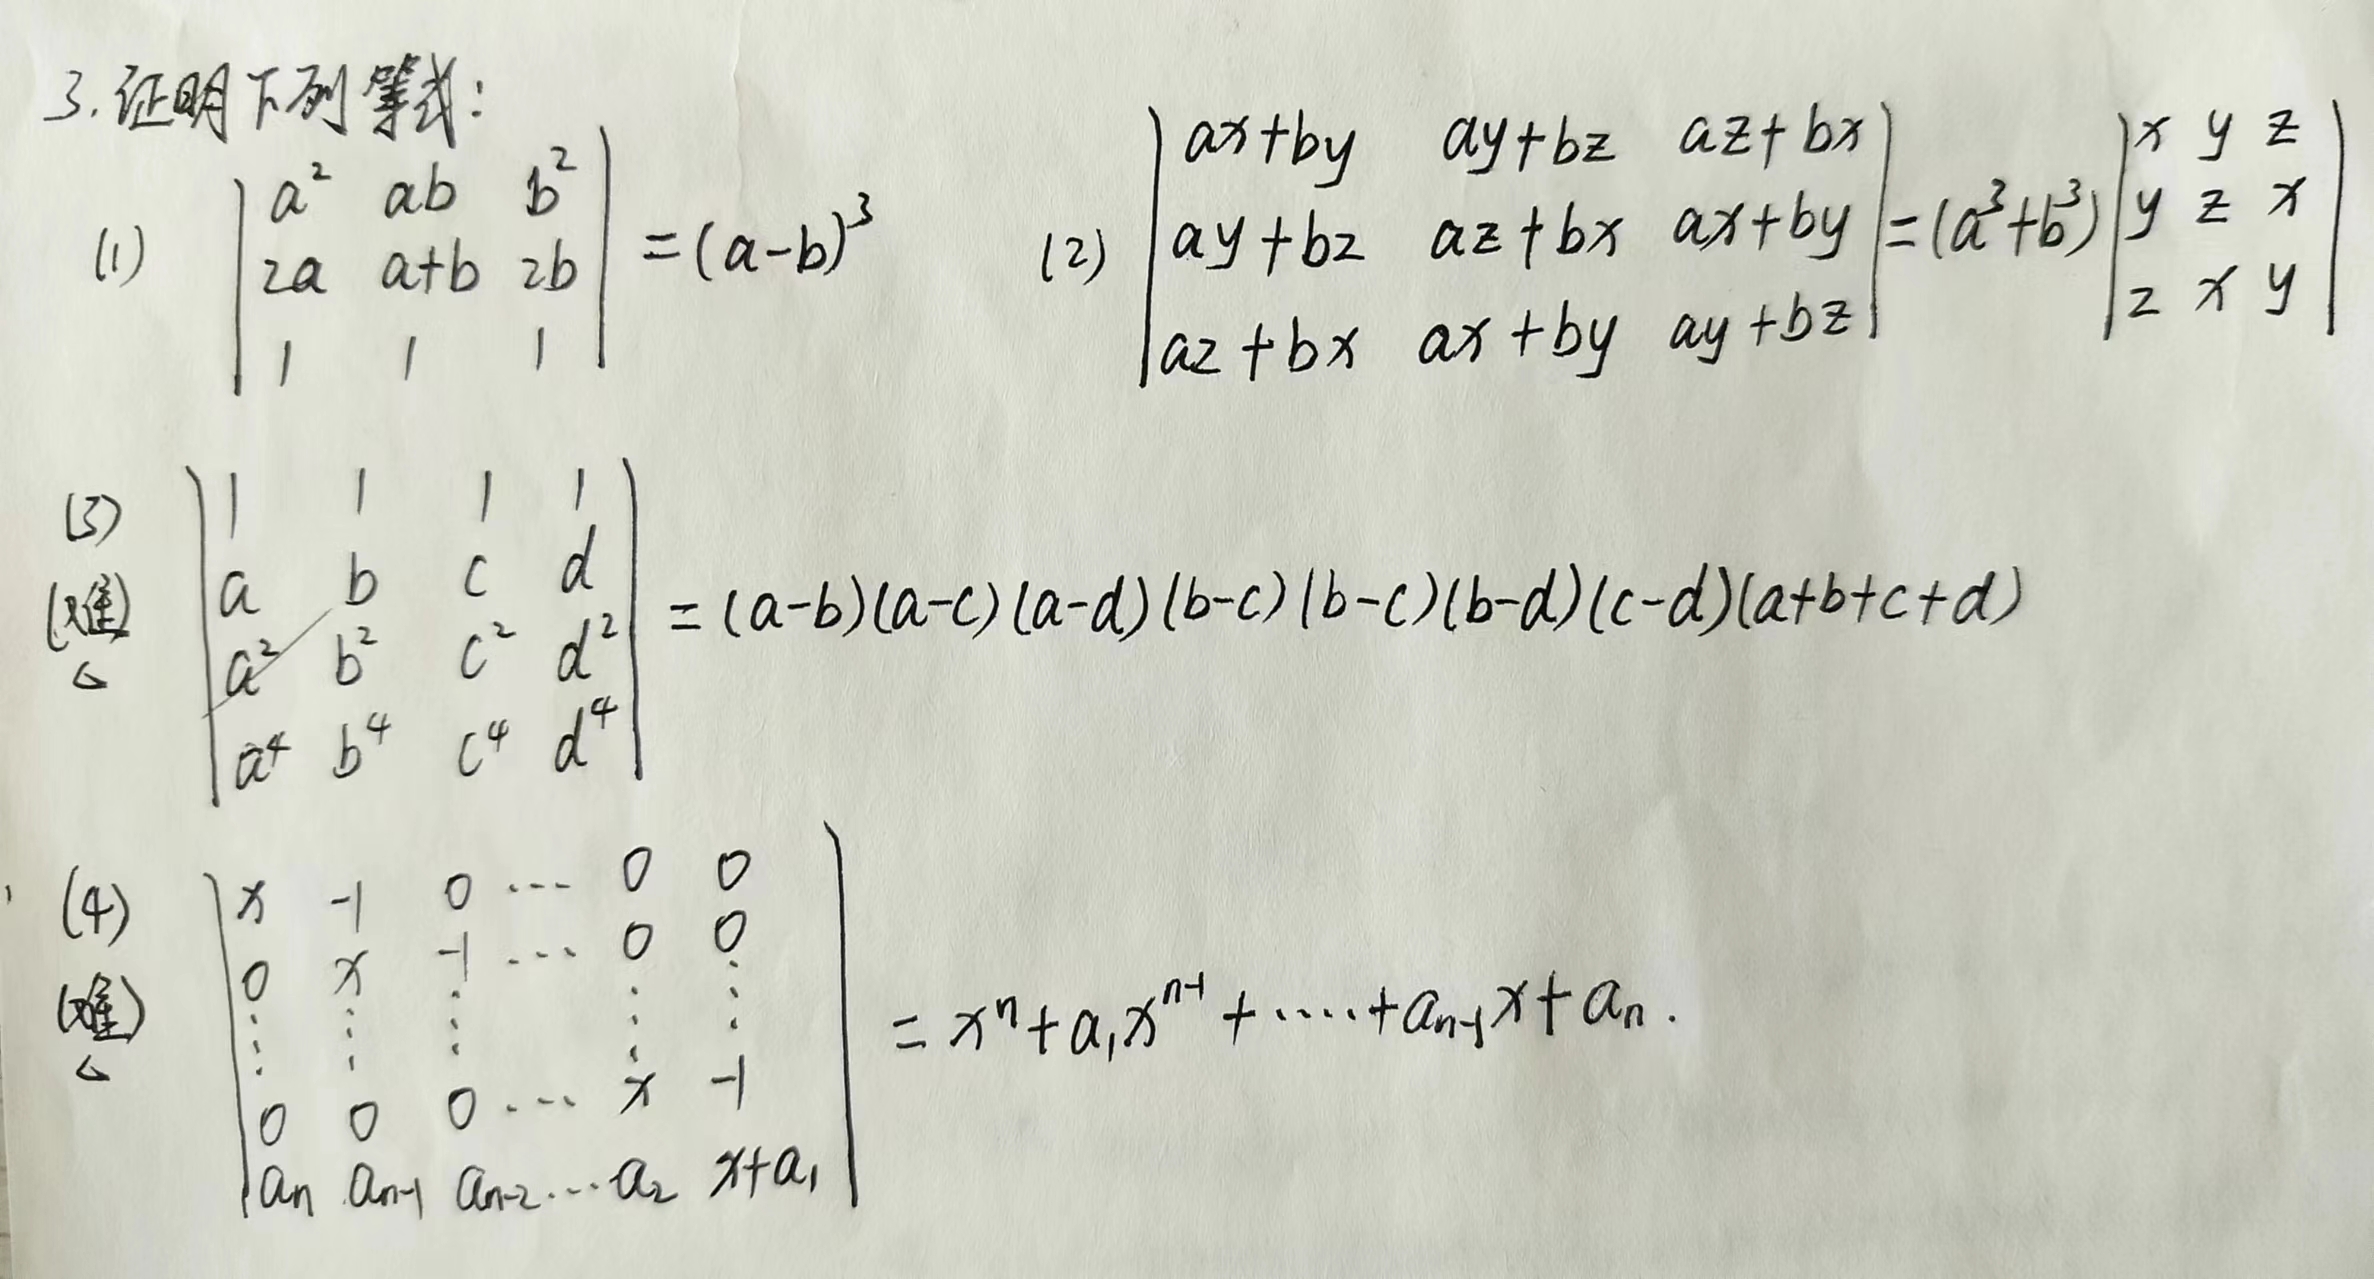 3. 证明下列等式:
(1) | a² ab b² |
| 2a a+b 2b | = (a-b)³
| 1 1 1 |
(2) | ax+by ay+bz az+bx |
| ay+bz az+bx ax+by |
| az+bx ax+by ay+bz |
= (a³+b³) | x y z |
| y z x |
| z x y |
(3) (难)
| 1 1 1 1 |
| a b c d |
| a² b² c² d² |
| a⁴ b⁴ c⁴ d⁴ |
= (a-b)(a-c)(a-d)(b-c)(b-c)(b-d)(c-d)(a+b+c+d)
(4) (难)
| x -1 0 ... 0 0 |
| 0 x -1 ... 0 0 |
| ⋮ ⋮ ⋮ ⋮ ⋮ |
| 0 0 0 ... x -1 |
| aₙ aₙ₋₁ aₙ₋₂ ... a₂ x+a₁ |
= xⁿ+a₁xⁿ⁻¹+·····+aₙ₋₁x+aₙ.